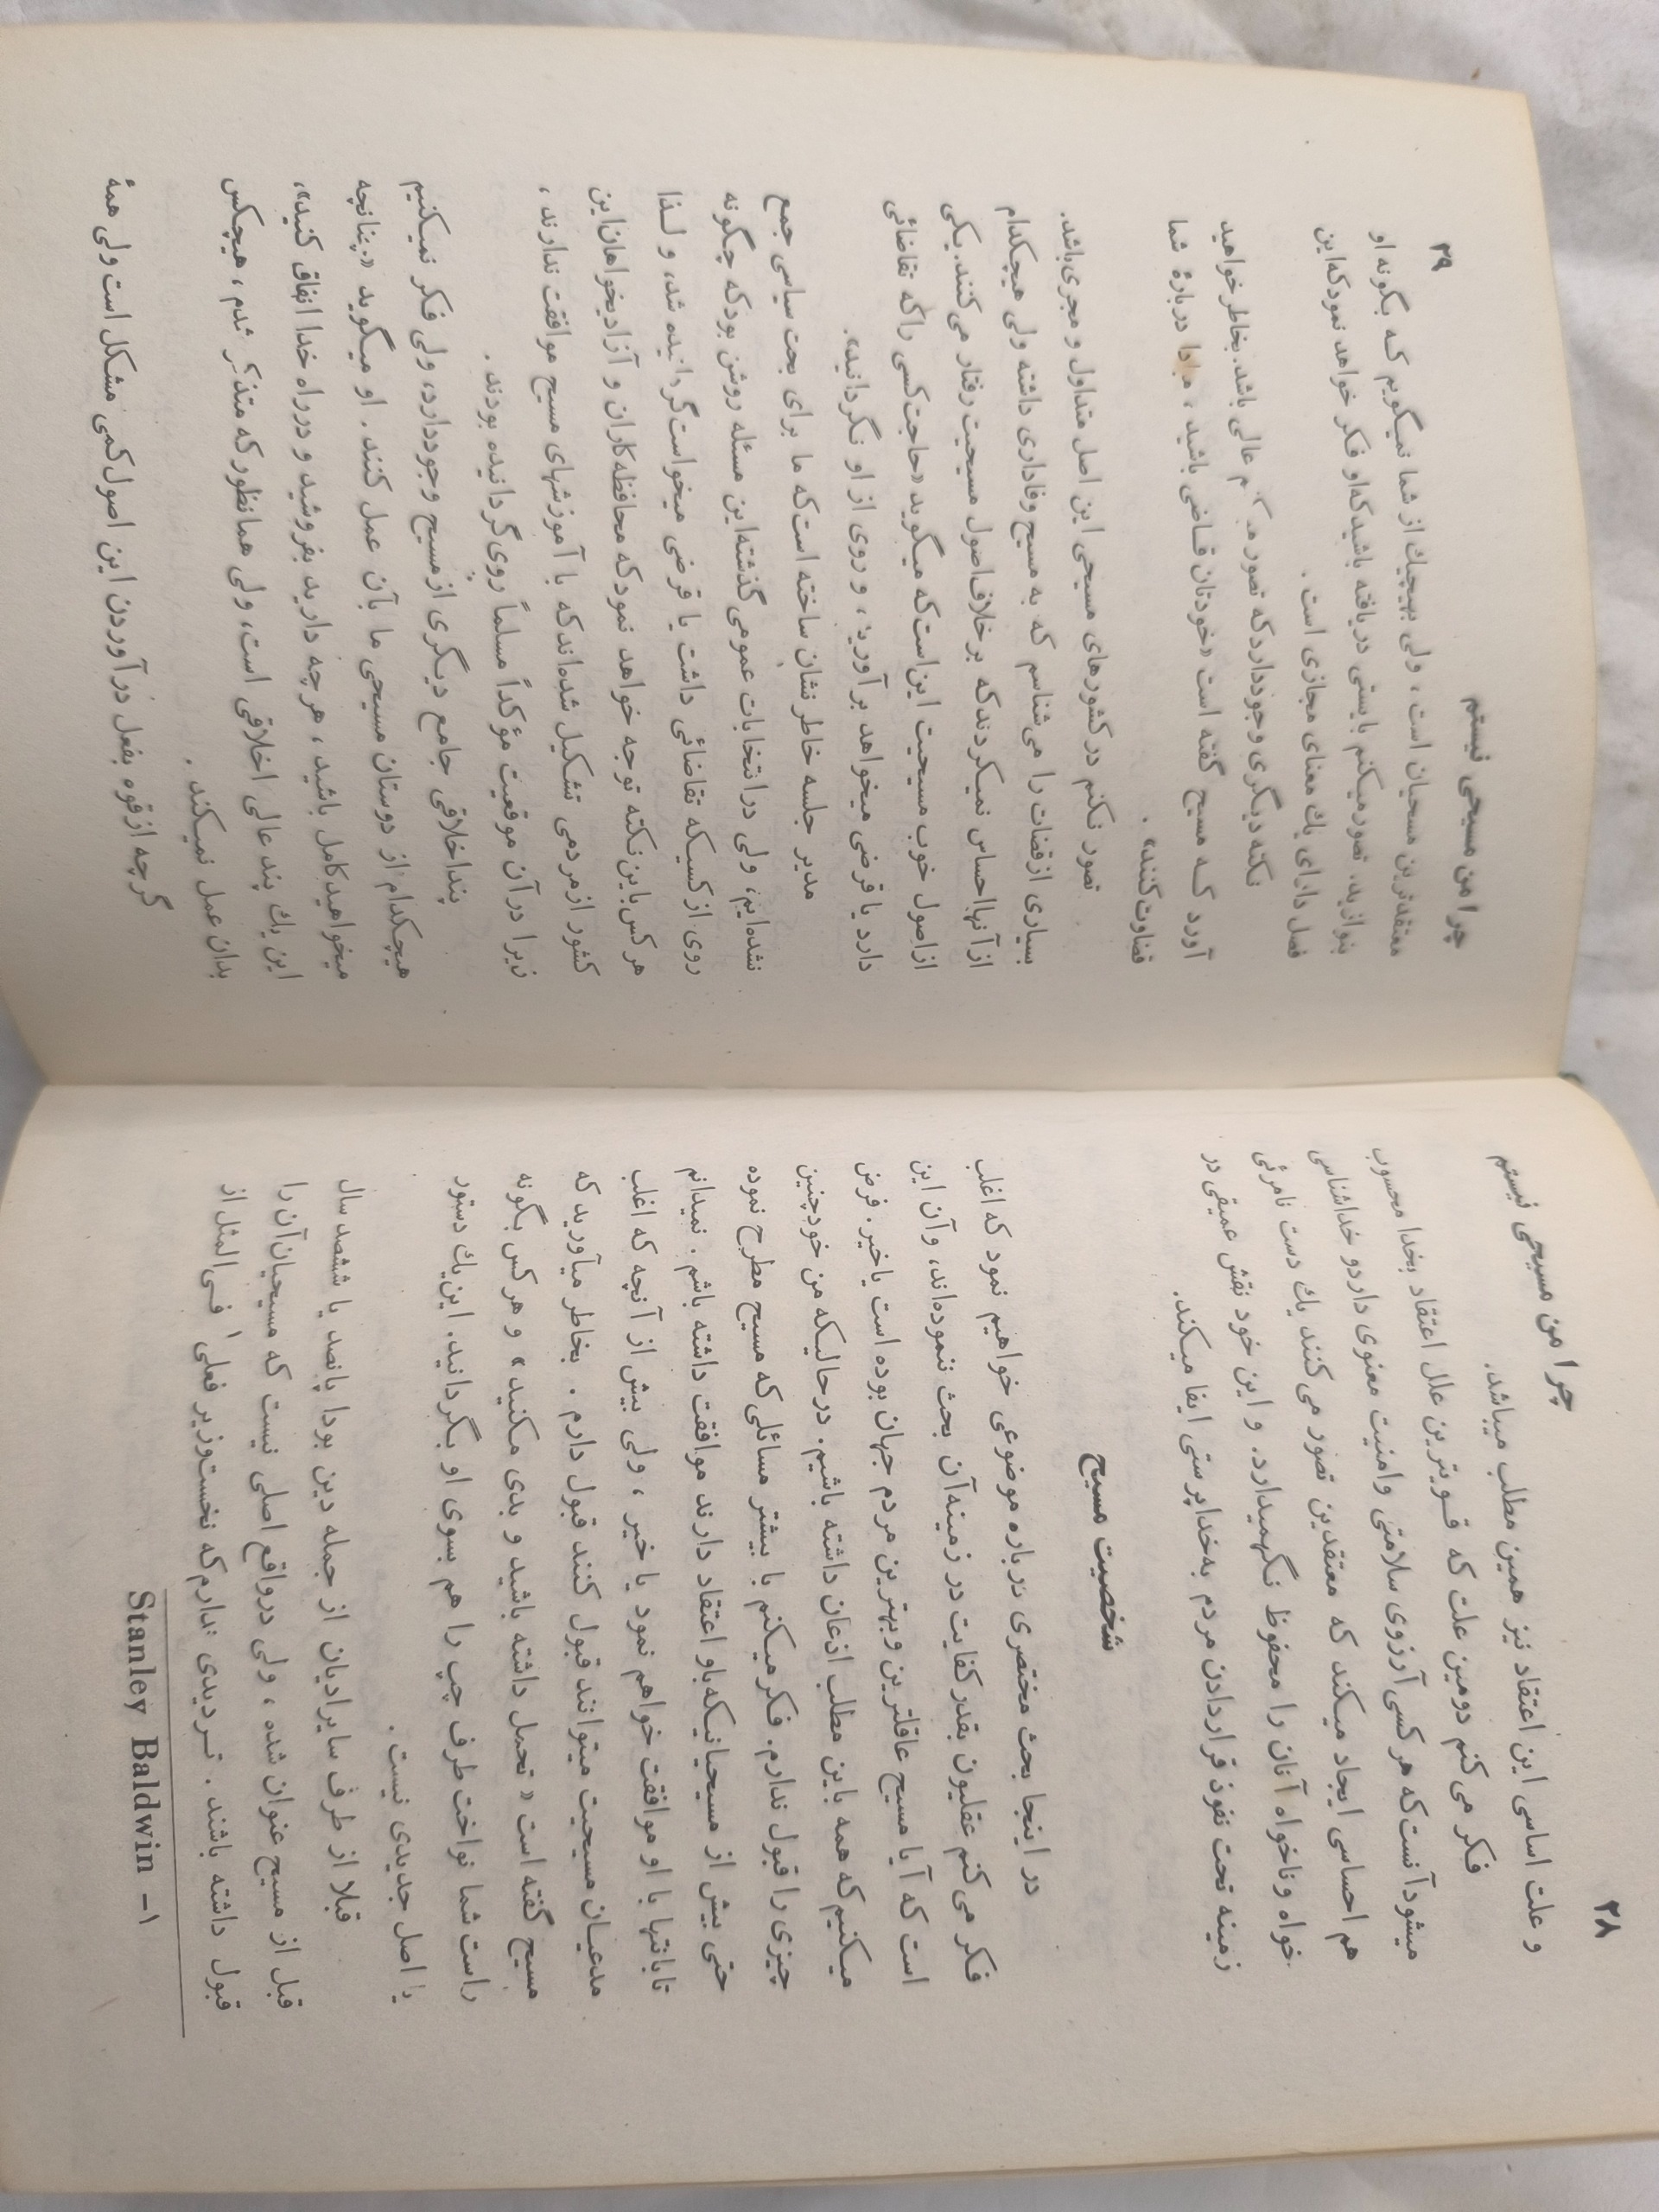 ۲۸
چرا من مسیحی نیستم
و علت اساسی این اعتقاد نیز همین مطلب میباشد.
فکر می‌کنم دومین علت که قویترین علل اعتقاد بخدا محسوب
میشود آنست که هر کسی آرزوی سلامتی وامنیت معنوی دارد و خداشناسی
هم احساسی ایجاد میکند که معتقدین تصور می‌کنند یك دست نامرئی
خواه و ناخواه آنان را محفوظ نگهمیدارد. و این خود نقش عمیقی در
زمینه تحت نفوذ قراردادن مردم به‌خداپرستی ایفا میکند.
شخصیت مسیح
در اینجا بحث مختصری درباره موضوعی خواهیم نمود که اغلب
فکر می‌کنم عقلیون بقدر کفایت در زمینه آن بحث ننموده‌اند، و آن این
است که آیا مسیح عاقلترین و بهترین مردم جهان بوده است یاخیر. فرض
میکنیم که همه باین مطلب اذعان داشته باشیم. درحالیکه من خودچنین
چیزی را قبول ندارم. فکر میکنم با بیشتر مسائلی که مسیح مطرح نموده
حتی بیش از مسیحیانیکه باو اعتقاد دارند موافقت داشته باشم. نمیدانم
تا بانتها با او موافقت خواهم نمود یا خیر ، ولی بیش از آنچه که اغلب
مدعیان مسیحیت میتوانند قبول کنند قبول دارم . بخاطر میآورید که
مسیح گفته است « تحمل داشته باشید و بدی مکنید » و هر کس بگونه
راست شما نواخت طرف چپ را هم بسوی او بگردانید. این یك دستور
یا اصل جدیدی نیست .
قبلا از طرف سایر ادیان از جمله دین بودا پانصد یا ششصد سال
قبل از مسیح عنوان شده ، ولی درواقع اصلی نیست که مسیحیان آن را
قبول داشته باشند . تردیدی ندارم که نخست‌وزیر فعلی ۱ فی‌المثل از
۱- Stanley Baldwin
چرا من مسیحی نیستم
۲۹
معتقدترین مسحیان است ، ولی بهیچیك از شما نمیگویم که بگونه او
بنوازید. تصور میکنم بایستی دریافته باشید که او فکر خواهد نمود که این
فصل دارای یك معنای مجازی است .
نکته دیگری وجود دارد که تصور میکنم عالی باشد. بخاطر خواهید
آورد که مسیح گفته است «خودتان قاضی باشید ، مبادا دربارهٔ شما
قضاوت کنند» .
تصور نکنم در کشورهای مسیحی این اصل متداول و مجری باشد.
بسیاری از قضات را می‌شناسم که به مسیح وفاداری داشته ولی هیچکدام
از آنها احساس نمیکردند که برخلاف اصول مسیحیت رفتار می‌کنند. یکی
از اصول خوب مسیحیت این‌است که میگوید «حاجت کسی را که تقاضائی
دارد یا قرضی میخواهد برآورید ، و روی از او نگردانید».
مدیر جلسه خاطر نشان ساخته است که ما برای بحث سیاسی جمع
نشده‌ایم، ولی در انتخابات عمومی گذشته این مسئله روشن بود که چگونه
روی از کسیکه تقاضائی داشت یا قرضی میخواست گردانیده شد، و لذا
هر کس باین نکته توجه خواهد نمود که محافظه‌کاران و آزادیخواهان این
کشور از مردمی تشکیل شده‌اند که با آموزشهای مسیح موافقت ندارند ،
زیرا در آن موقعیت مؤکداً مسلماً روی گردانیده بودند .
پنداخلاقی جامع دیگری از مسیح وجوددارد، ولی فکر نمیکنیم
هیچکدام از دوستان مسیحی ما بآن عمل کنند . او میگوید «چنانچه
میخواهید کامل باشید ، هرچه دارید بفروشید و در راه خدا انفاق کنید»،
این یك پند عالی اخلاقی است، ولی همانطور که متذکر شدم ، هیچکس
بدان عمل نمیکند .
گرچه از قوه بفعل درآوردن این اصول کمی مشکل است ولی همهٔ